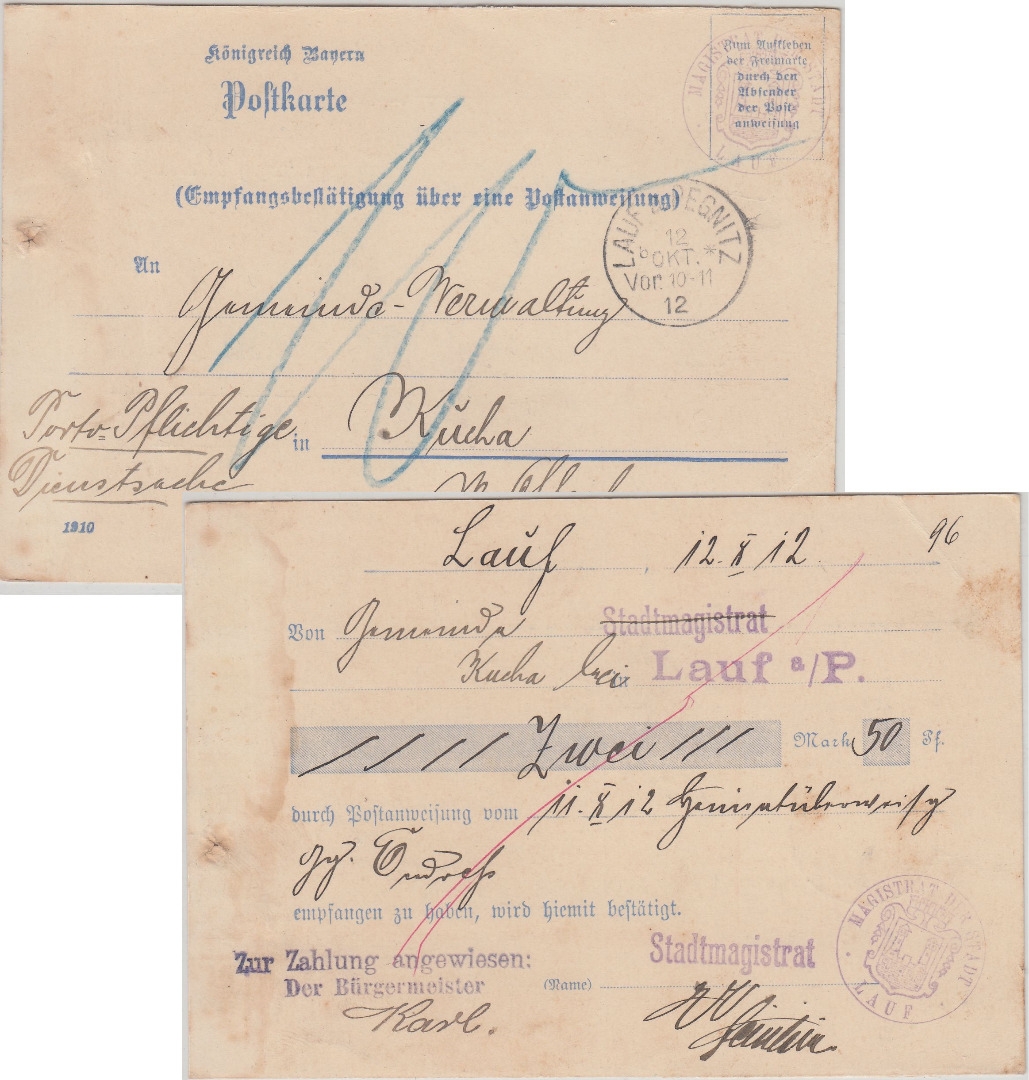 Königreich Bayern
Postkarte
Zum Aufkleben
der Freimarke
durch den
Absender
der Post-
anweisung
MAGISTRAT DER STADT
LAUF
(Empfangsbestätigung über eine Postanweisung)
LAUF A. PEGNITZ
12
b OKT. *
Vor. 10-11
12
An
Gemeinde-Verwaltung
Porto-Pflichtige in Kucha
Dienstsache
1910
Lauf, 12. X 12. 96
Von Gemeinde Stadtmagistrat
Kucha Lauf a/P.
//// Zwei /// Mark 50 Pf.
durch Postanweisung vom 11. X 12 Heimatüberweisg
empfangen zu haben, wird hiemit bestätigt.
Zur Zahlung angewiesen: Stadtmagistrat
Der Bürgermeister (Name)
Karl.
MAGISTRAT DER STADT
LAUF